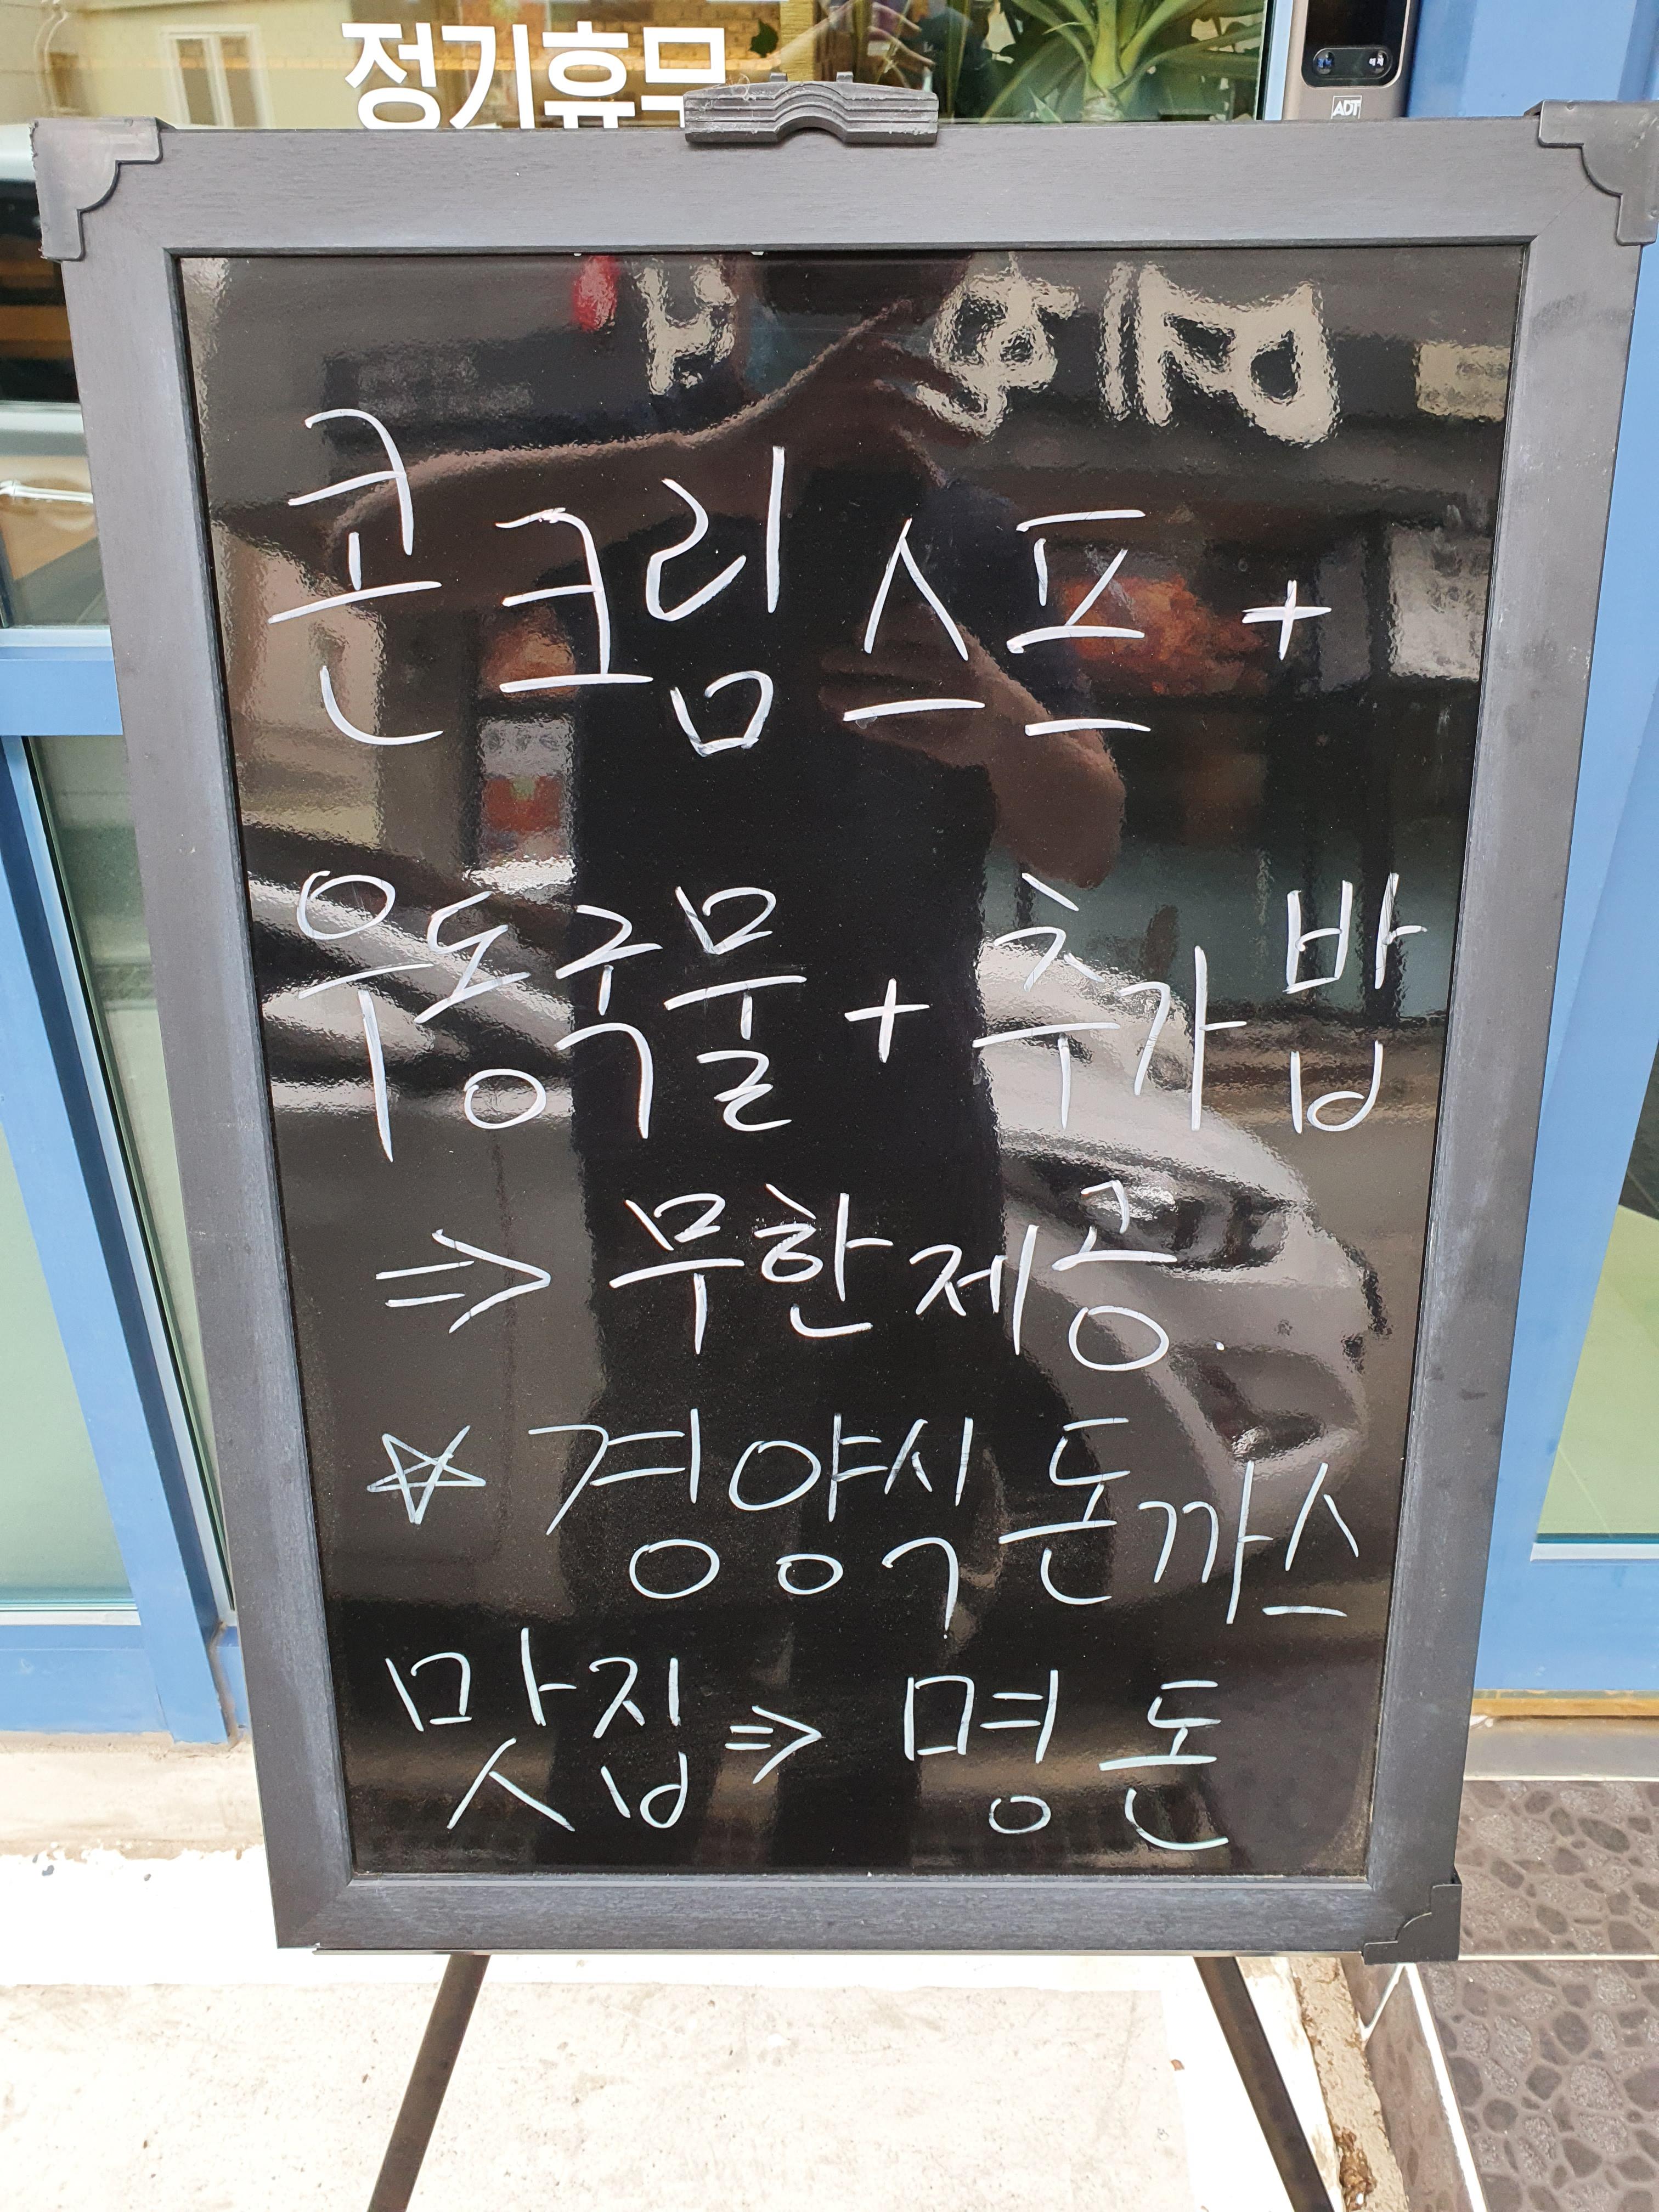 정기휴무
ADT
콘크림스프+
우동국물+추가밥
⇒ 무한제공.
☆ 경양식돈까스
맛집 ⇒ 명돈